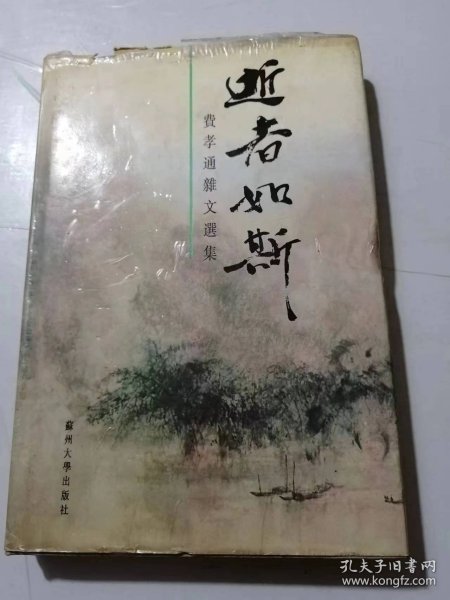 逝者如斯
費孝通雜文選集
蘇州大學出版社
孔夫子旧书网
www.kongfz.com